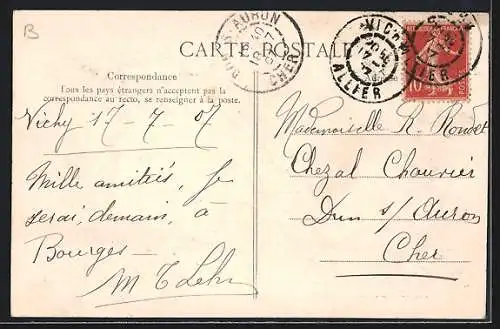 B
CARTE POSTALE
DUN-S-AURON
CHER
VICHY
ALLIER
10
Correspondance
Tous les pays étrangers n'acceptent pas la
correspondance au recto, se renseigner à la poste.
Vichy 17-7-07
Mille amitiés, Je
serai, demain, à
Bourges
Mademoiselle R.
Chez
Dun s/ Auron
Cher